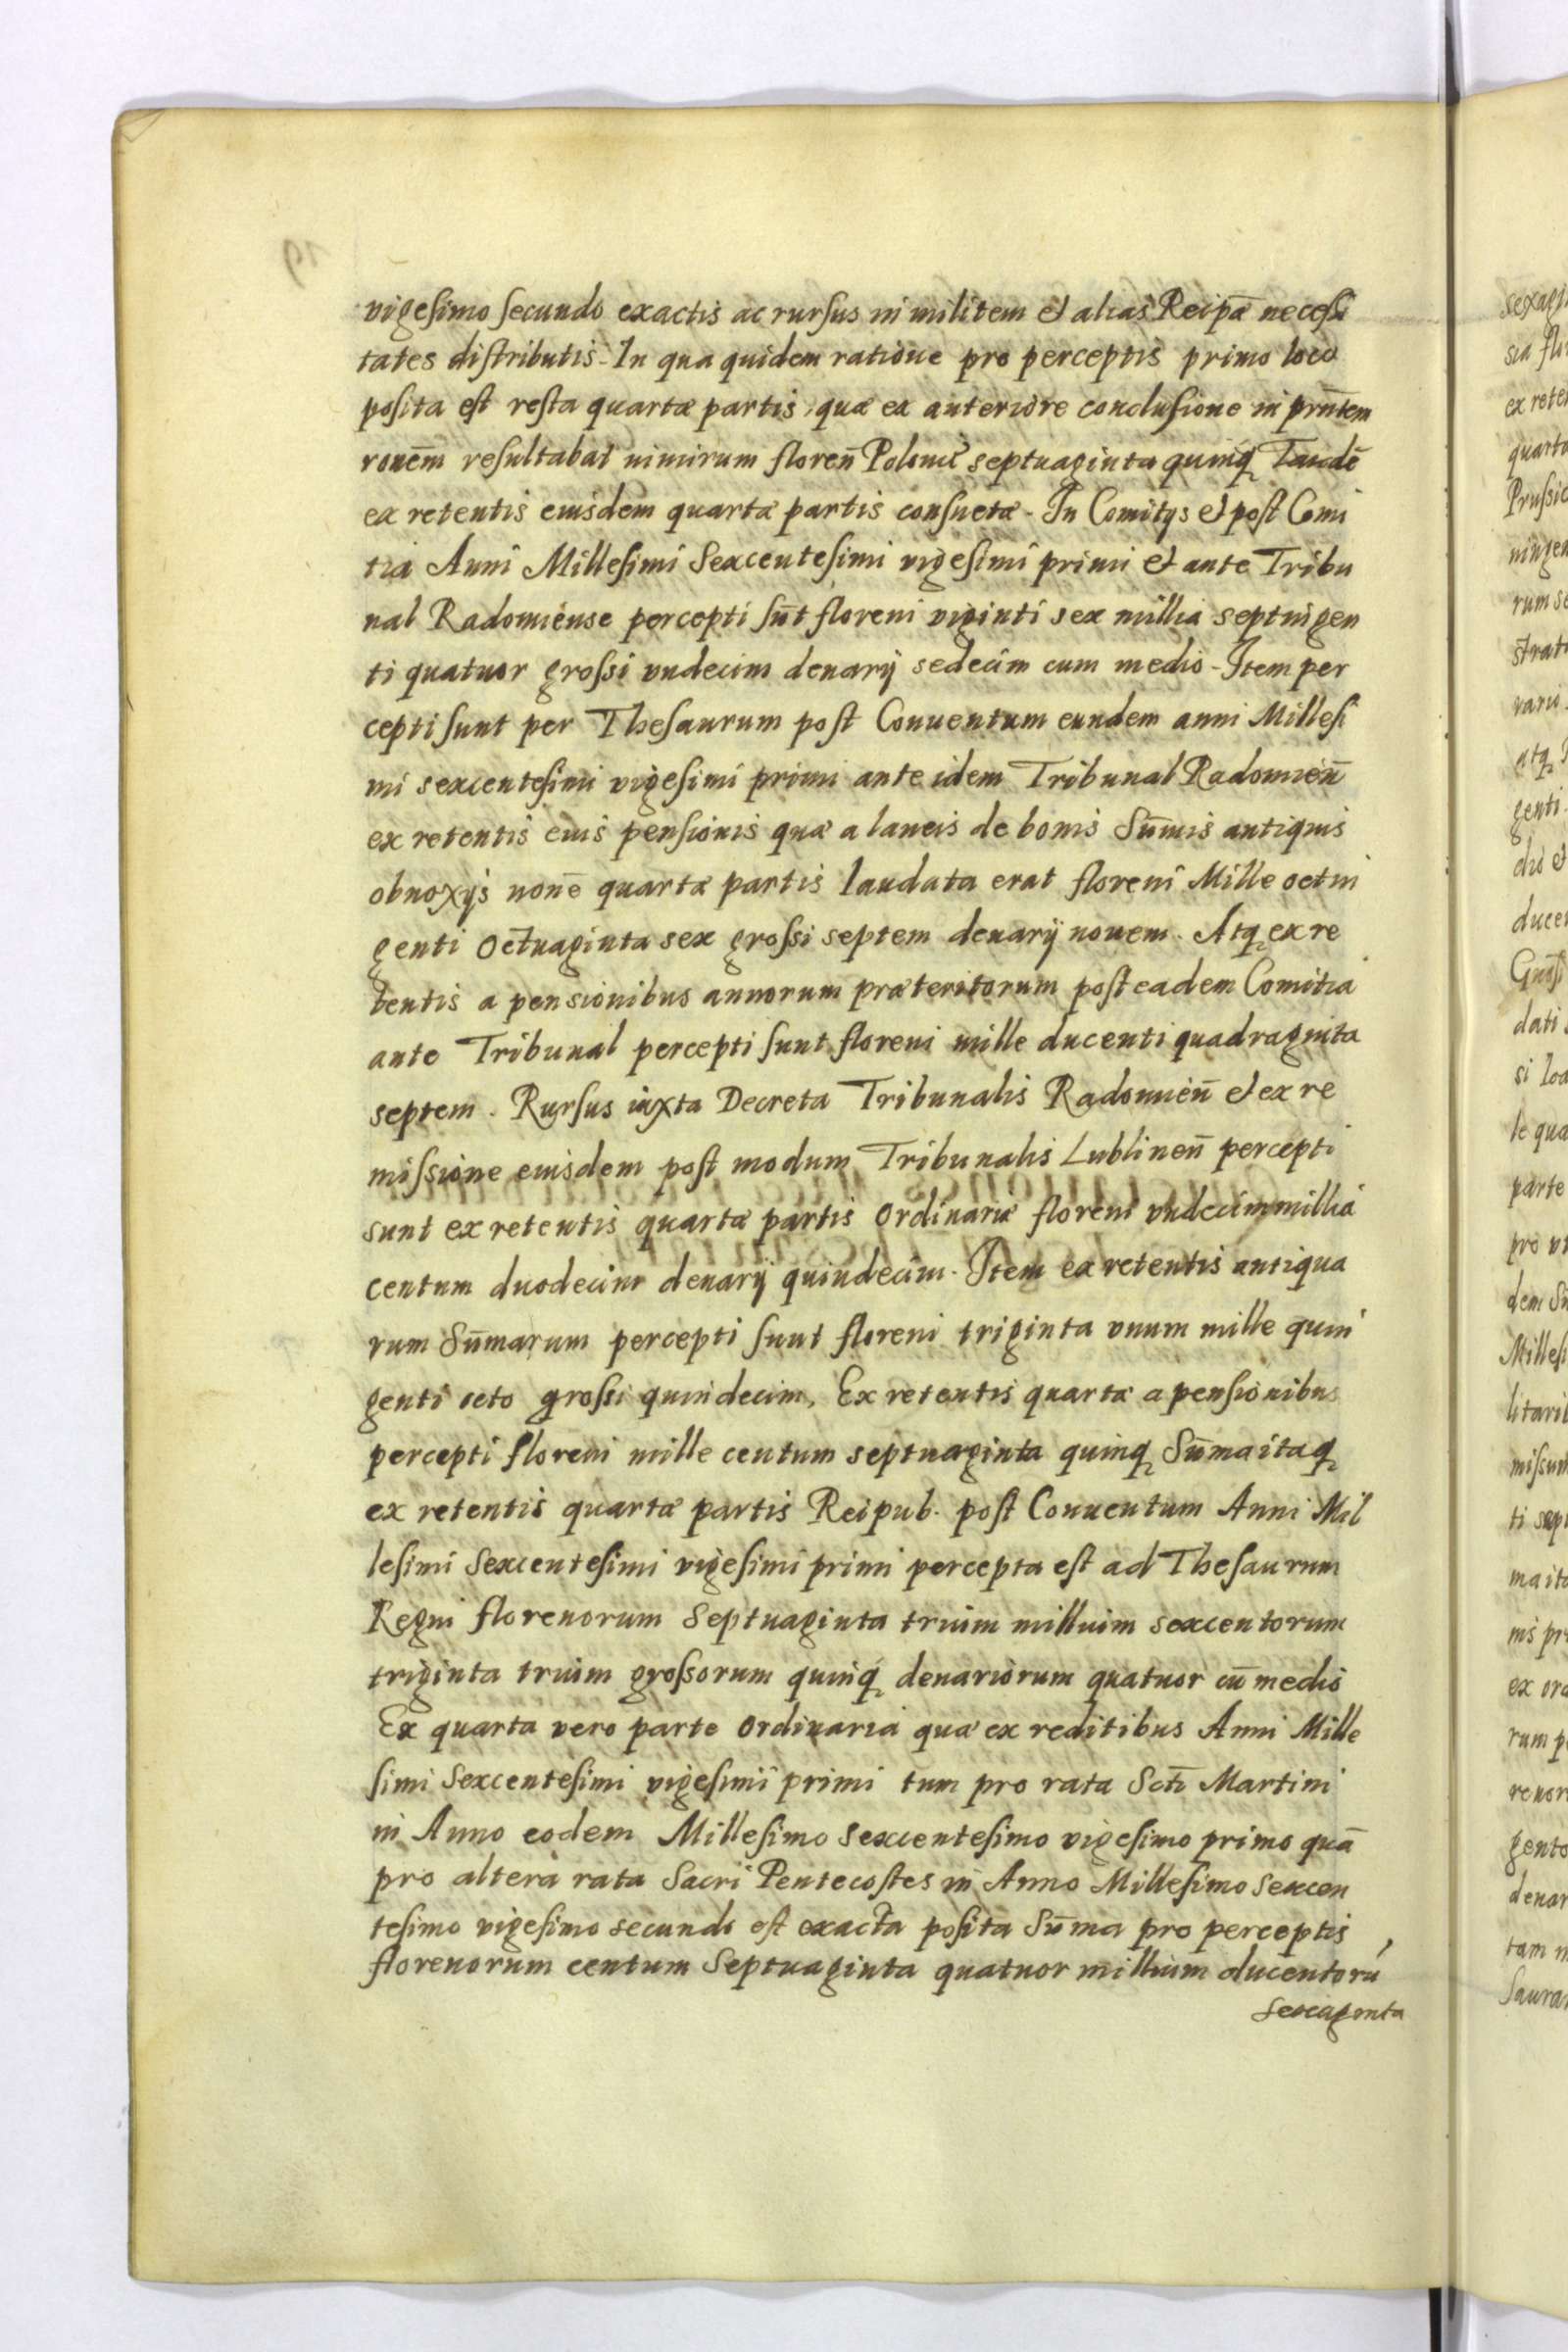 vigesimo secundo exactis ac rursus in militem et alias Reipæ necessi
tates distributis. In qua quidem ratione pro perceptis primo loco
posita est resta quartæ partis, quæ ex anteriore conclusione in prñtem
ronem̄ resultabat nimirum floren̄ Polonic septuaginta quinq Tandē
ex retentis eiusdem quartæ partis consuetæ - In Comitijs et post Comi
tia Anni Millesimi Sexcentesimi vigesimi primi et ante Tribu
nal Radomiense percepti sūt floreni viginti sex millia septingen
ti quatuor grossi vndecim denarij sedecim cum medio - Item per
cepti sunt per Thesaurum post Conuentum eundem anni Millesi
mi sexcentesimi vigesimi primi ante idem Tribunal Radomien̄
ex retentis eius pensionis quæ a laneis de bonis Sum̄is antiquis
obnoxijs noīe quartæ partis laudata erat floreni Mille octin
genti octuaginta sex grossi septem denarij nouem. Atq ex re
tentis a pensionibus annorum præteritorum post eadem Comitia
ante Tribunal percepti sunt floreni mille ducenti quadraginta
septem. Rursus iuxta Decreta Tribunalis Radomien̄ et ex re
missione eiusdem post modum Tribunalis Lublinen̄ percepti
sunt ex retentis quartæ partis ordinariæ floreni vndecim millia
centum duodecim denarij quindecim. Item ex retentis antiqua
rum Sūmarum percepti sunt floreni triginta vnum mille quin
genti octo grossi quindecim, Ex retentis quartæ a pensionibus
percepti floreni mille centum septuaginta quinq Sūma itaq
ex retentis quartæ partis Reipub. post Conuentum Anni Mil
lesimi Sexcentesimi vigesimi primi percepta est ad Thesaurum
Regni florenorum Septuaginta trium millium sexcentorum
triginta trium grossorum quinq denariorum quatuor cū medio
Ex quarta vero parte ordinaria quæ ex reditibus Anni Mille
simi Sexcentesimi vigesimi primi tum pro rata Scti Martini
in Anno eodem Millesimo sexcentesimo vigesimo primo quā
pro altera rata Sacri Pentecostes in Anno Millesimo Sexcen
tesimo vigesimo secundo est exacta posita Sūma pro perceptis
florenorum centum Septuaginta quatuor millium ducentorū
Sexaginta